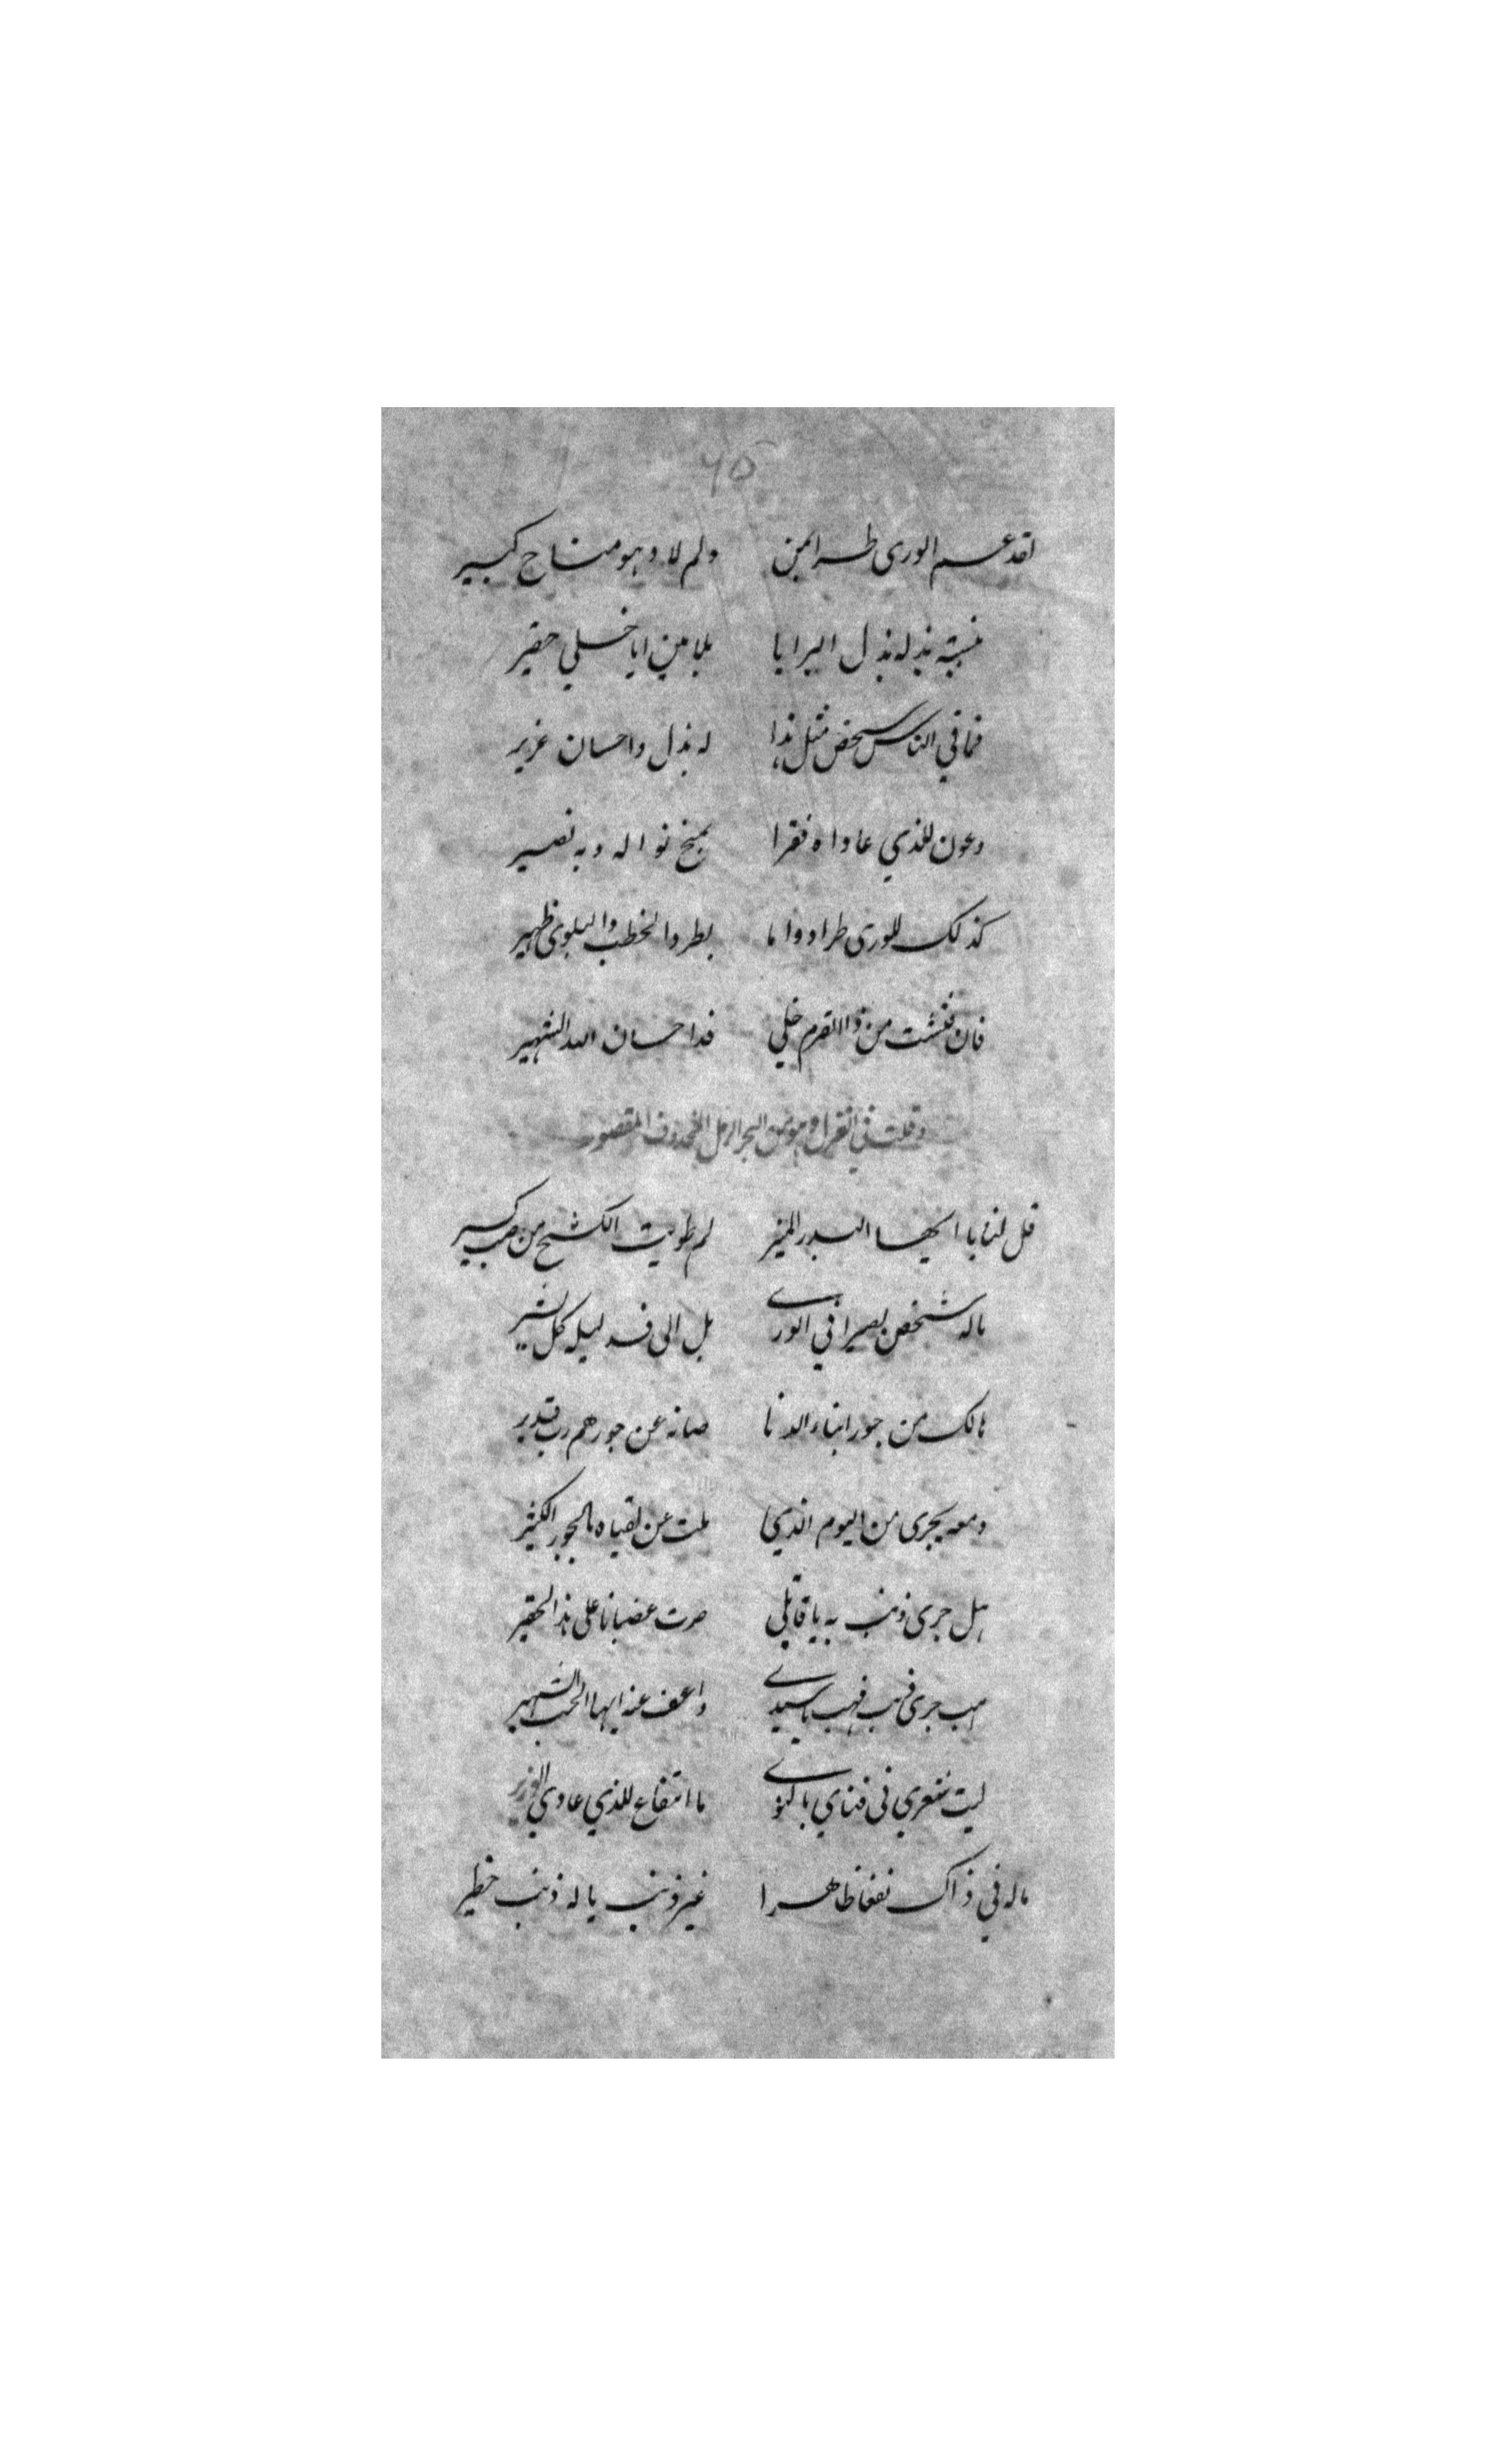 ٦٥
لقد عم الورى طرا بمن ولم لا وهو مناح كبير
بنسبته بذله بذل البرايا بلا مين ايا خلي حقير
فما في الناس شخص مثل هذا له بذل واحسان غزير
وعون للذي عاداه فقرا بمنح نواله وبه نصير
كذلك للورى طرا دواما بطرد الخطب والبلوى ظهير
فان فتشت من ذا القرم خلي فذا احسان الله الشهير
وقلت في الغزل وهو من البحر الرمل المحذوف المقصور
قل لنا يا ايها البدر المنير لم طويت الكشح من صب كسير
ماله شخص نصيرا في الورى بل الى كل يشير
هالك من جور ابناء الدنا صانه عن جورهم رب قدير
دمعه يجرى من اليوم الذي ملت عن لقياه بالجور الكثير
هل جرى ذنب به يا قاتلي صرت غضبانا على هذا الحقير
هب جرى ذنب فهب يا سيدي واعف عنه ايها الحب الشهير
ليت شعري في فناي بالنوى ما انتفاع للذي عادي الغزير
ماله في ذاك نفعا ظاهرا غير ذنب يا له ذنب خطير